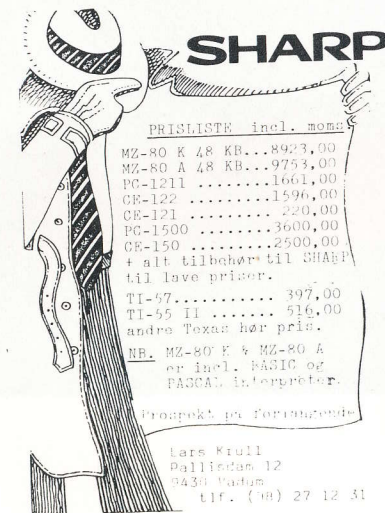 SHARP
PRISLISTE incl. moms
MZ-80 K 48 KB...8923,00
MZ-80 A 48 KB...9753,00
PC-1211 ........1661,00
CE-122 .........1596,00
CE-121 ......... 220,00
PC-1500 ........3600,00
CE-150 .........2500,00
+ alt tilbehør til SHARP
til lave priser.
TI-57........... 397,00
TI-55 II ....... 516,00
andre Texas hør pris.
NB. MZ-80 K & MZ-80 A
er incl. BASIC og
PASCAL interpreter.
Prospekt på forlangende
Lars Krull
Pallisdam 12
9430 Vadum
tlf. (08) 27 12 31